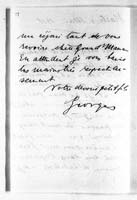 me réjouis tant de vous
revoir chère Grand'Maman
En attendant je vous baise
les mains très respectueu-
sement.
Votre dévoué petit fils
Georges